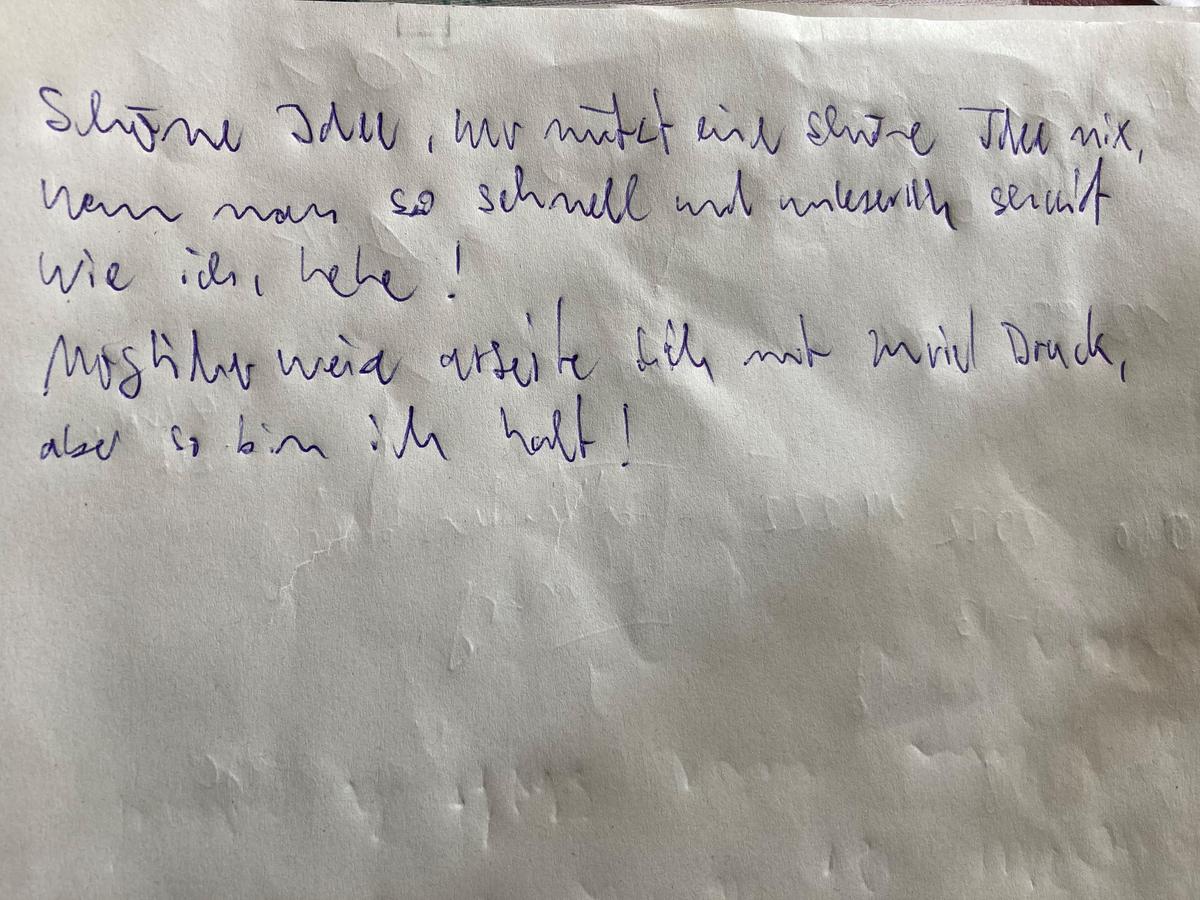 Schöne Idee, nur nützt eine schöne Idee nix,
wenn man so schnell und unleserlich schreibt
wie ich, hehe!
Möglicherweise arbeite ich mit zuviel Druck,
aber so bin ich halt!